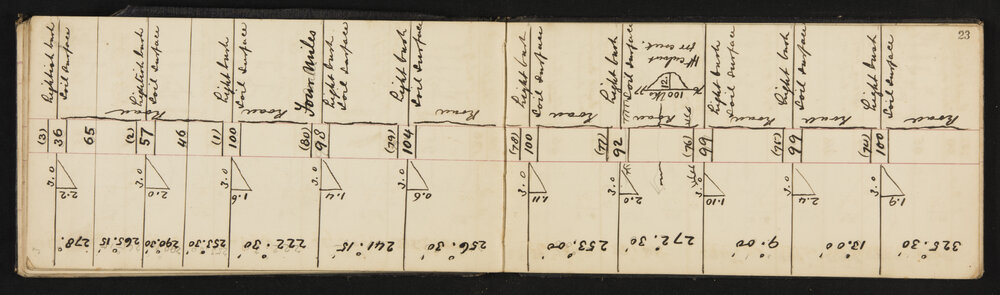 23
(3)
36
65
Lightish bush
Soil Surface
Road
3.0
2.2
278°
265.15
(2)
57
46
Lightish bush
Soil Surface
Road
3.0
2.0
290.30
253.30
(1)
100
Light bush
Soil Surface
Road
3.0
1.6
222.30
Four Miles
(80)
98
Light bush
Soil Surface
3.0
1.4
241.15
(79)
104
Light bush
Soil Surface
Road
3.0
0.6
256.30
(78)
100
Light bush
Soil Surface
Road
3.0
1.11
253.00
(77)
92
Light bush
Soil Surface
Road
100 lks
3.0
2.0
272.30
(76)
99
Light bush
Soil Surface
Road
3.0
1.10
9.00
(75)
99
Light bush
Soil Surface
Road
3.0
2.4
13.00
(74)
100
Light bush
Soil Surface
Road
3.0
1.9
325.30